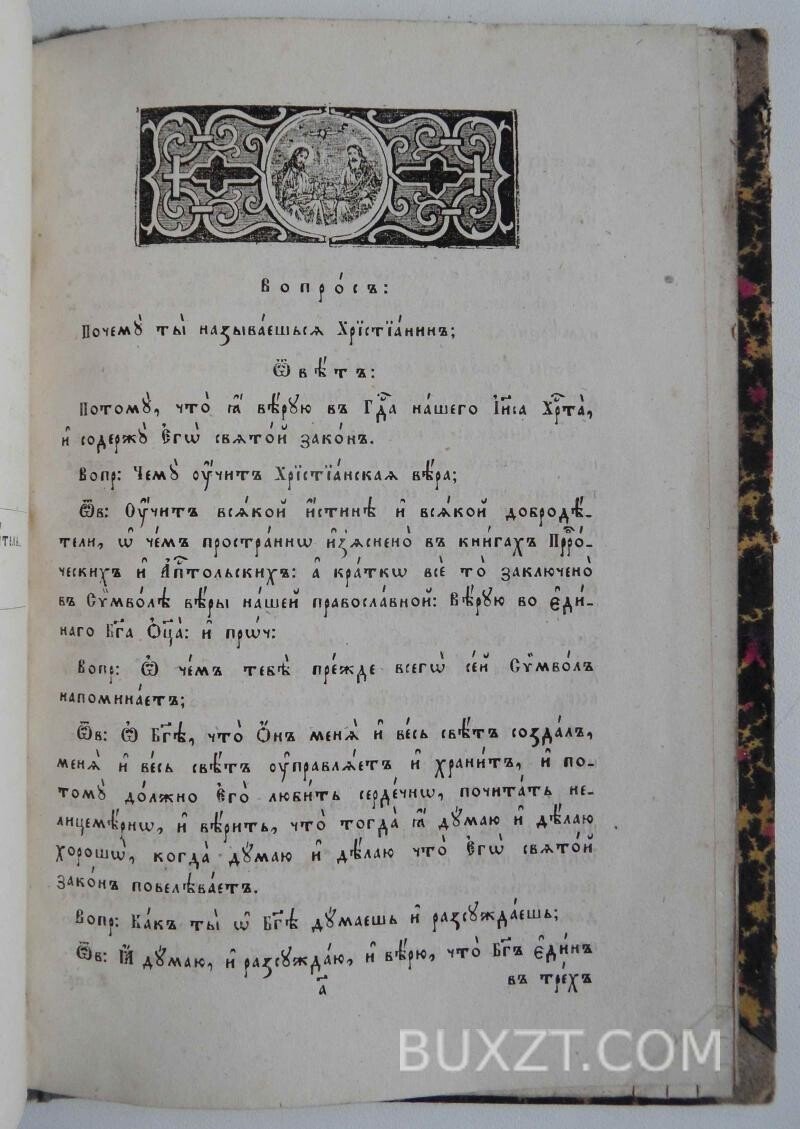 Вопро́съ:
Почемꙋ̀ ты̀ называ́ешьсѧ Хрїстїа́нинъ;
Ѿвѣ́тъ:
Потомꙋ̀, что̀ ꙗ҆̀ вѣ́рꙋю въ Гдⷭ҇а на́шего І҆и҃са Хрⷭ҇та̀,
и҆ содержꙋ̀ є҆гѡ̀ свѧто́й зако́нъ.
Вопр: Чемꙋ̀ ᲂу҆́читъ Хрїстїа́нскаѧ вѣ́ра;
Ѿв: Оу҆́читъ всѧ́кой и҆́стинѣ и҆ всѧ́кой добродѣ́-
тели, ѡ҆ че́мъ простра́ннѡ и҆з̾ѧснено̀ въ кни́гахъ Прⷪ҇ро́-
ческихъ и҆ А҆пⷭ҇тольскихъ: а҆ кра́ткѡ всѐ то̀ заключено̀
въ Сѷ́мволѣ вѣ́ры на́шей правосла́вной: Вѣ́рꙋю во є҆ди́-
наго Бг҃а Ѻ҆ц҃а̀: и҆ прѡ́ч:
Вопр: Ѡ҆ че́мъ тебѣ̀ пре́жде всегѡ̀ се́й Сѷ́мволъ
напомина́етъ;
Ѿв: Ѡ҆ Бг҃ѣ, что̀ Ѻ҆́нъ менѧ̀ и҆ ве́сь свѣ́тъ созда́лъ,
менѧ̀ и҆ ве́сь свѣ́тъ ᲂу҆правлѧ́етъ и҆ храни́тъ, и҆ по-
томꙋ̀ до́лжно є҆го̀ люби́ть серде́чнѡ, почита́ть не-
лицемѣ́рнѡ, и҆ вѣ́рить, что̀ тогда̀ ꙗ҆̀ дꙋ́маю и҆ дѣ́лаю
хорошѡ̀, когда̀ дꙋ́маю и҆ дѣ́лаю что̀ є҆гѡ̀ свѧто́й
зако́нъ повелѣва́етъ.
Вопр: Ка́къ ты̀ ѡ҆ Бг҃ѣ дꙋ́маешь и҆ разсꙋжда́ешь;
Ѿв: Ꙗ҆̀ дꙋ́маю, и҆ разсꙋжда́ю, и҆ вѣ́рю, что̀ Бг҃ъ є҆ди́нъ
а҃
въ тре́хъ
BUXZT.COM